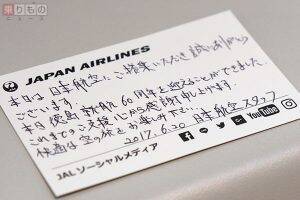 乗りもの
ニュース
JAPAN AIRLINES
本日は日本航空にご搭乗いただき誠にありがとう
ございます。
本日、徳島就航60周年を迎えることができました。
これまでのご支援に心から感謝申し上げます。
快適な空の旅をお楽しみ下さい 日本航空スタッフ
2017.6.20
JALソーシャルメディア
YouTube